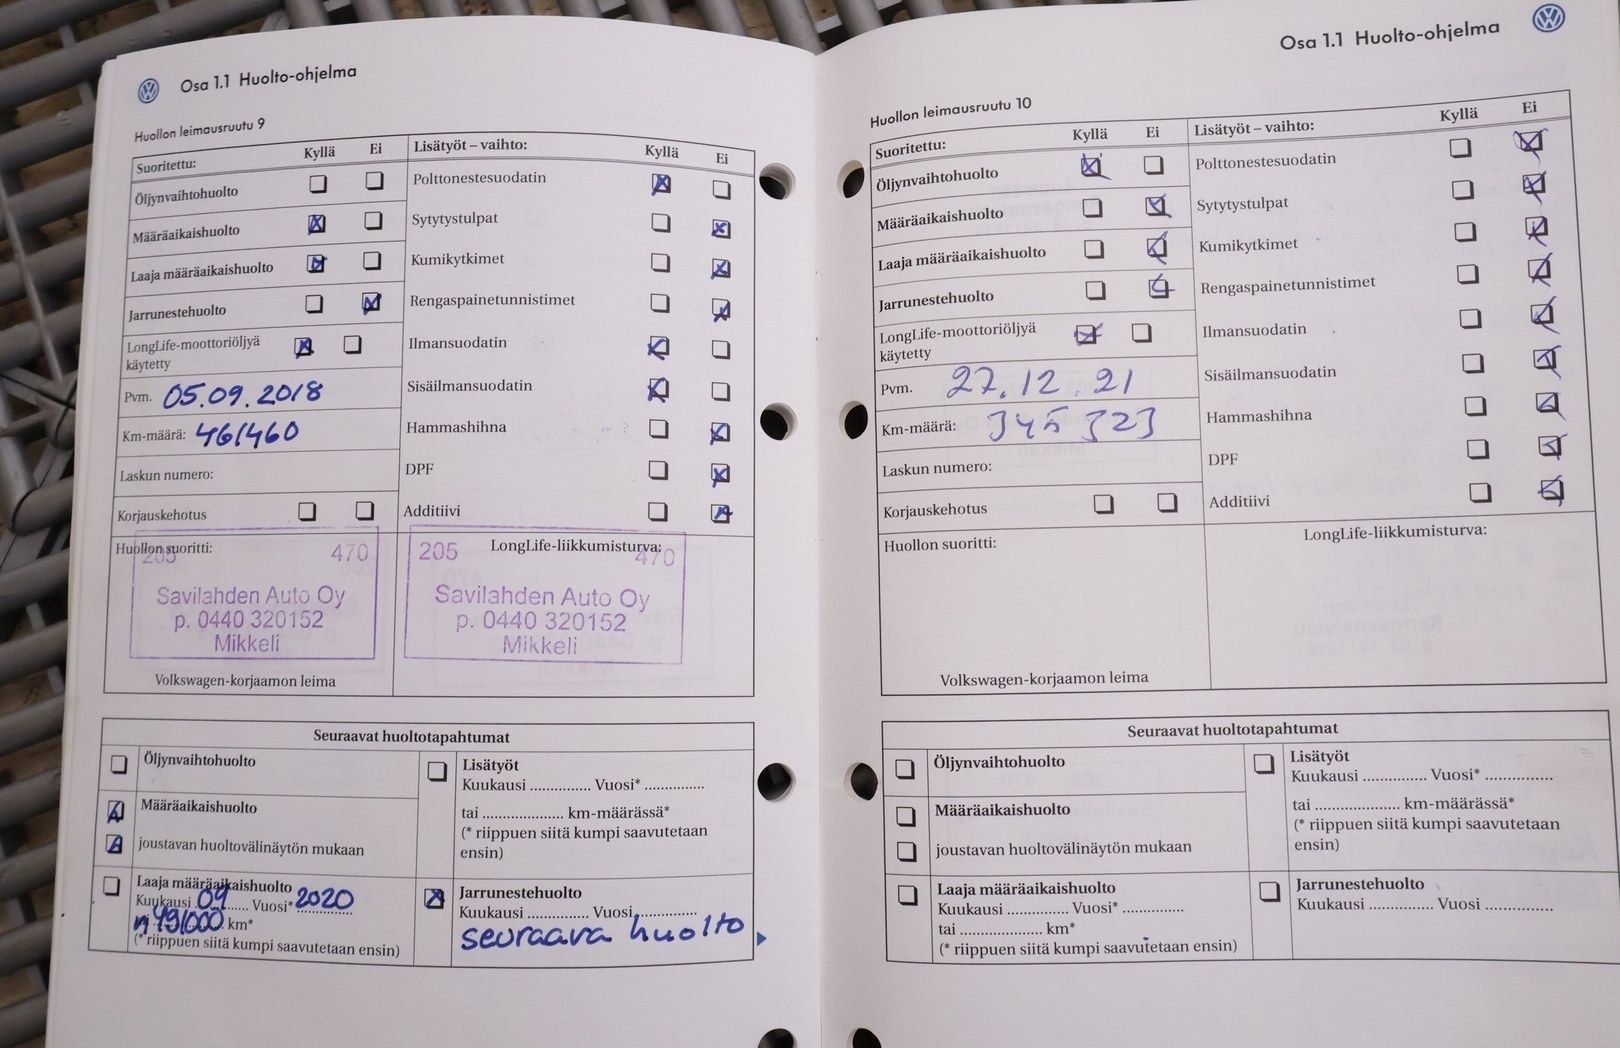 Osa 1.1 Huolto-ohjelma
Huollon leimausruutu 9
Suoritettu: Kyllä Ei
Öljynvaihtohuolto
Määräaikaishuolto
Laaja määräaikaishuolto
Jarrunestehuolto
LongLife-moottoriöljyä
käytetty
Pvm. 05.09.2018
Km-määrä: 461460
Laskun numero:
Korjauskehotus
Lisätyöt – vaihto: Kyllä Ei
Polttonestesuodatin
Sytytystulpat
Kumikytkimet
Rengaspainetunnistimet
Ilmansuodatin
Sisäilmansuodatin
Hammashihna
DPF
Additiivi
Huollon suoritti:
205 470
Savilahden Auto Oy
p. 0440 320152
Mikkeli
Volkswagen-korjaamon leima
LongLife-liikkumisturva:
205 470
Savilahden Auto Oy
p. 0440 320152
Mikkeli
Seuraavat huoltotapahtumat
Öljynvaihtohuolto
Määräaikaishuolto
joustavan huoltovälinäytön mukaan
Laaja määräaikaishuolto
Kuukausi 09 Vuosi* 2020
n 491000 km*
(* riippuen siitä kumpi saavutetaan ensin)
Lisätyöt
Kuukausi ............... Vuosi* ...............
tai .................... km-määrässä*
(* riippuen siitä kumpi saavutetaan
ensin)
Jarrunestehuolto
Kuukausi ............... Vuosi ...............
seuraava huolto
Osa 1.1 Huolto-ohjelma
Huollon leimausruutu 10
Suoritettu: Kyllä Ei
Öljynvaihtohuolto
Määräaikaishuolto
Laaja määräaikaishuolto
Jarrunestehuolto
LongLife-moottoriöljyä
käytetty
Pvm. 27.12.21
Km-määrä: 345323
Laskun numero:
Korjauskehotus
Lisätyöt – vaihto: Kyllä Ei
Polttonestesuodatin
Sytytystulpat
Kumikytkimet
Rengaspainetunnistimet
Ilmansuodatin
Sisäilmansuodatin
Hammashihna
DPF
Additiivi
Huollon suoritti:
Volkswagen-korjaamon leima
LongLife-liikkumisturva:
Seuraavat huoltotapahtumat
Öljynvaihtohuolto
Määräaikaishuolto
joustavan huoltovälinäytön mukaan
Laaja määräaikaishuolto
Kuukausi ............... Vuosi* ...............
tai .................... km*
(* riippuen siitä kumpi saavutetaan ensin)
Lisätyöt
Kuukausi ............... Vuosi* ...............
tai .................... km-määrässä*
(* riippuen siitä kumpi saavutetaan
ensin)
Jarrunestehuolto
Kuukausi ............... Vuosi ...............